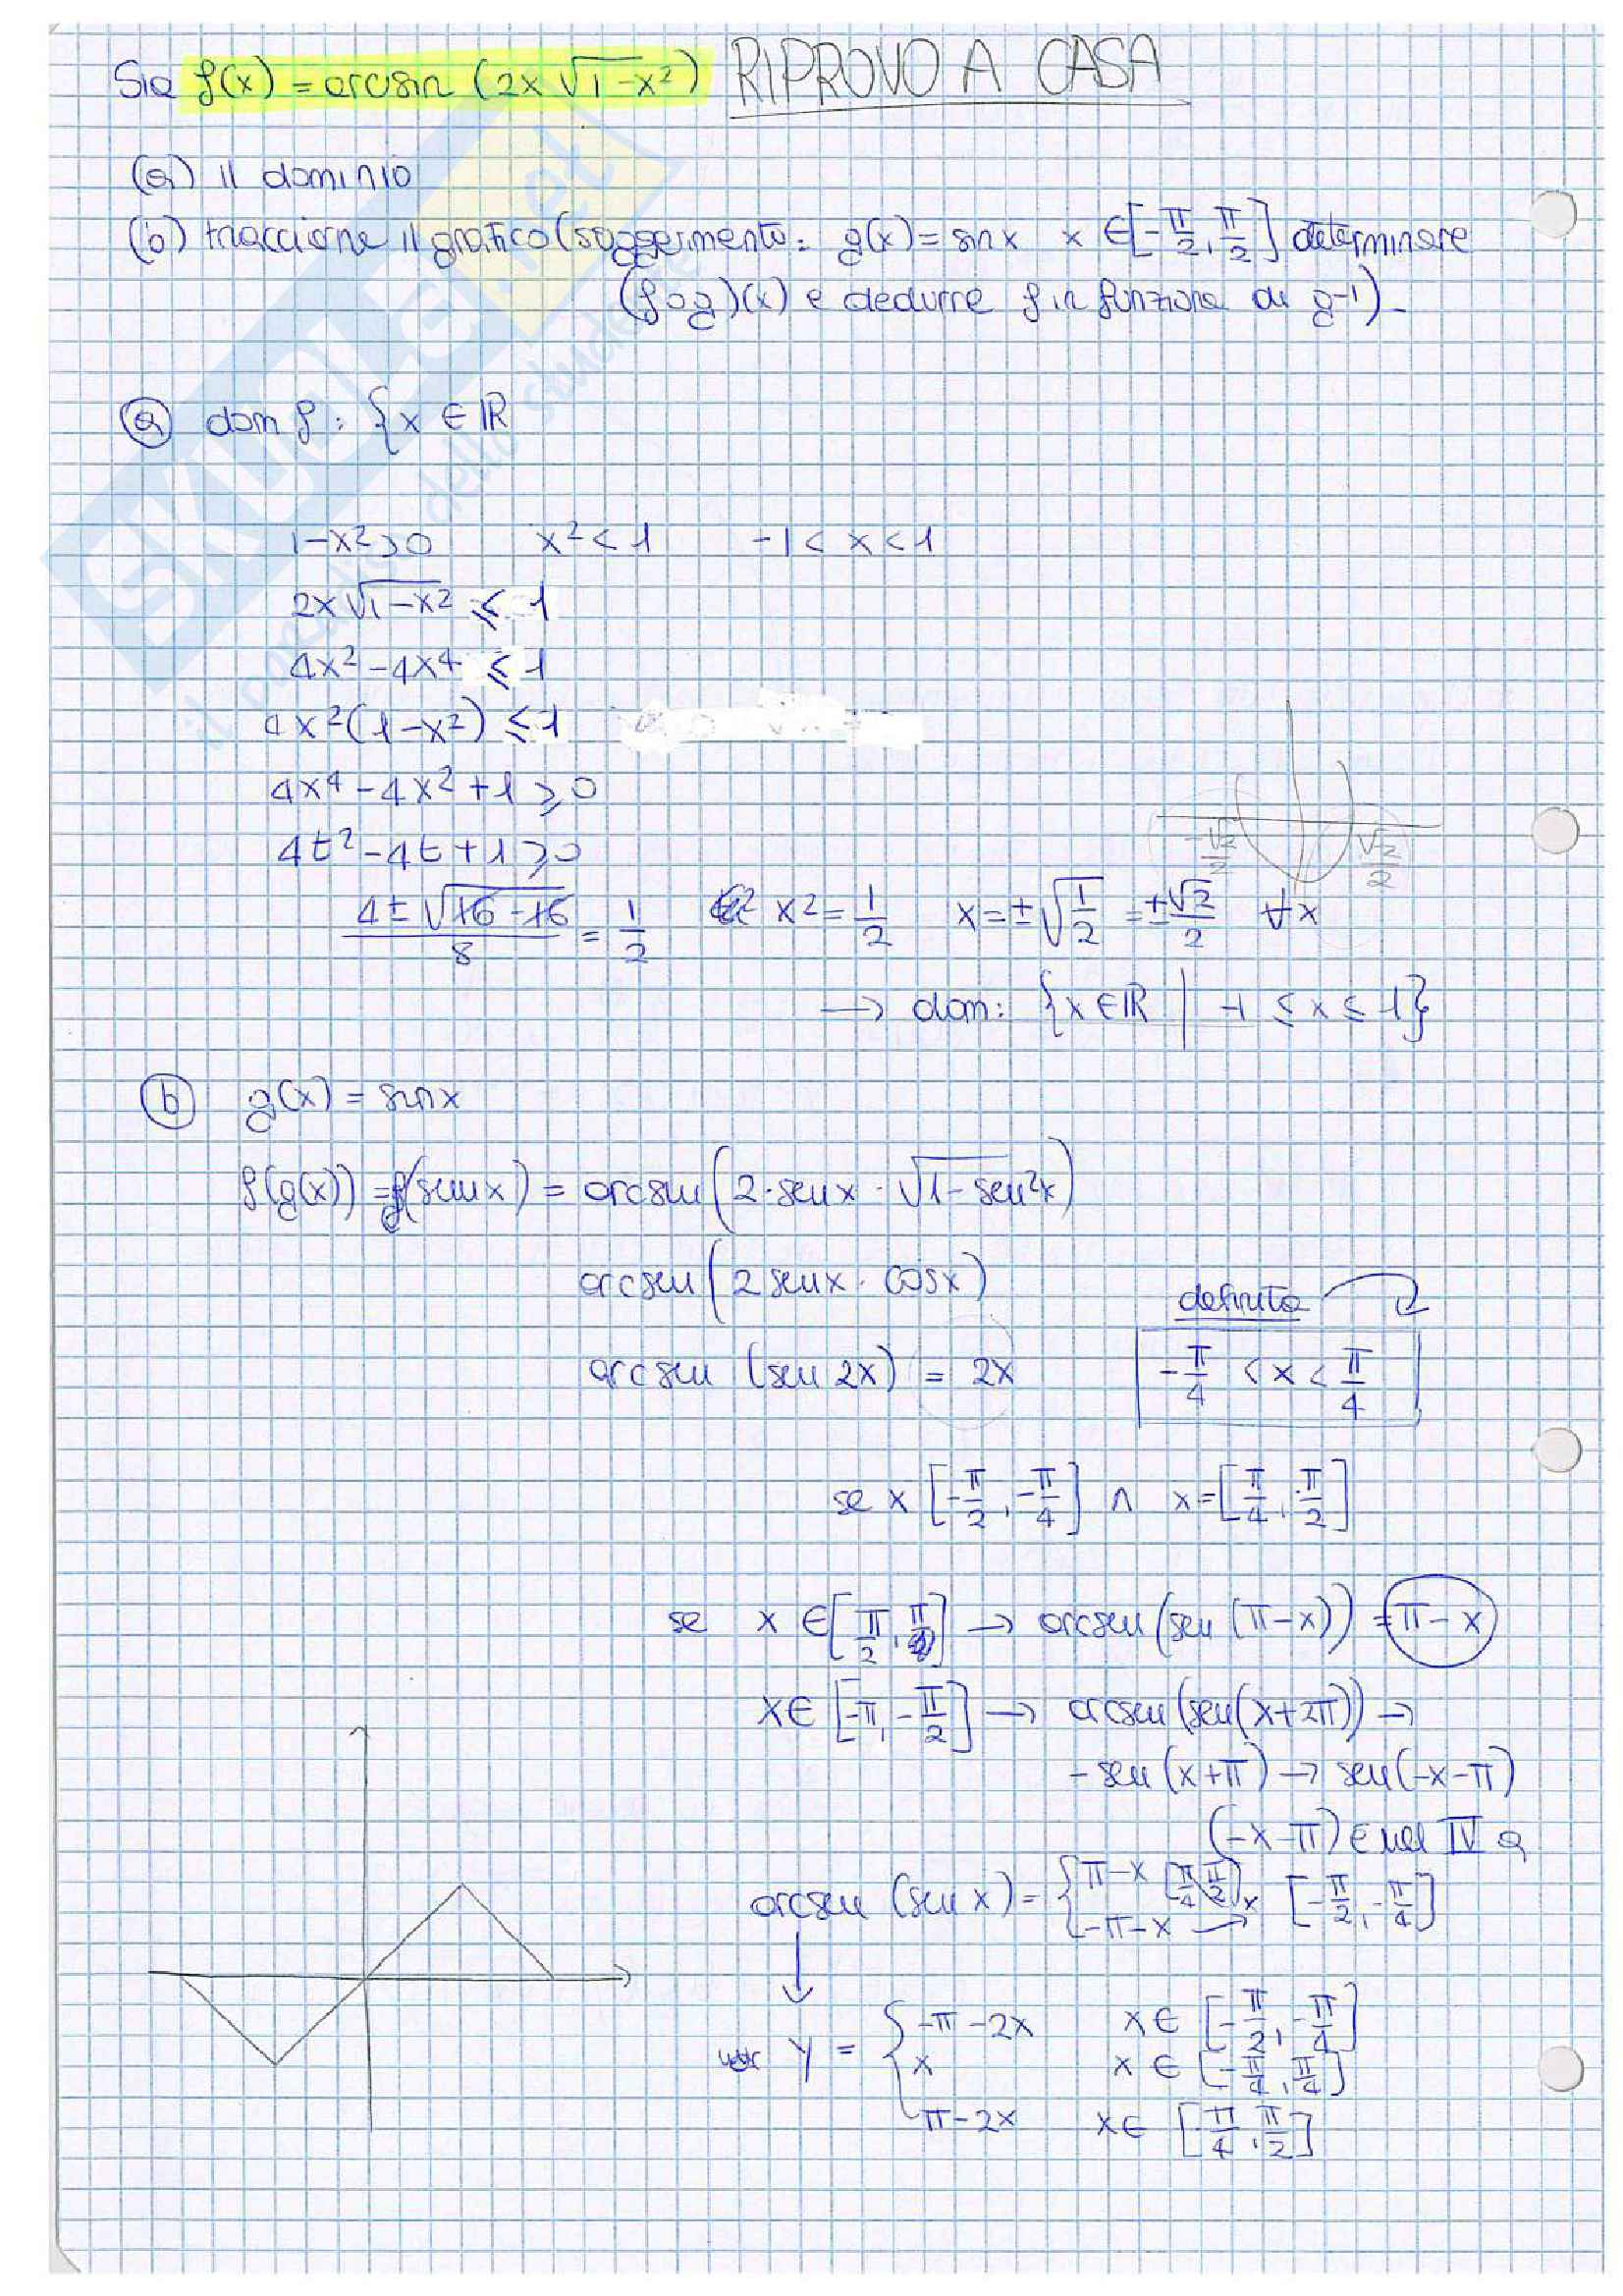 Sia f(x) = arcsin (2x √1-x²) RIPROVO A CASA
(a) il dominio
(b) tracciarne il grafico (suggerimento: g(x) = sinx x ∈ [-π/2, π/2] determinare
(f∘g)(x) e dedurre f in funzione di g⁻¹).
SKUOLA.net
il paradiso dello studente
(a) dom f: {x ∈ ℝ
1-x²>0 x²<1 -1 < x < 1
2x√1-x² ≤ 1
4x² - 4x⁴ ≤ 1
4x²(1-x²) ≤ 1
4x⁴ - 4x² + 1 ≥ 0
4t² - 4t + 1 ≥ 0
-√2/2 √2/2
4 ± √16-16 / 8 = 1/2 x² = 1/2 x = ±√1/2 = ±√2/2 ∀x
→ dom: {x ∈ ℝ | -1 ≤ x ≤ 1}
(b) g(x) = sinx
f(g(x)) = f(senx) = arcsen (2·senx · √1-sen²x)
arcsen (2senx · cosx)
definita
arcsen (sen 2x) = 2x -π/4 < x < π/4
se x [-π/2, -π/4] ∧ x = [π/4, π/2]
se x ∈ [π/2, π] → arcsen (sen (π-x)) = π-x
x ∈ [-π, -π/2] → arcsen (sen(x+2π)) →
-sen (x+π) → sen(-x-π)
(-x-π) ∈ nel IV Q
arcsen (senx) = { π-x [π/4, π/2]
-π-x → x [-π/2, -π/4]
y = { -π-2x x ∈ [-π/2, -π/4]
x x ∈ [-π/4, π/4]
π-2x x ∈ [π/4, π/2]